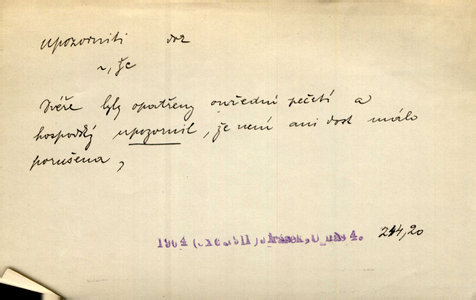 upozorniti dok
~, že
Dvéře byly opatřeny úřední pečetí a
hospodský upozornil, že není ani dost málo
porušena,
1904 4. 244,20